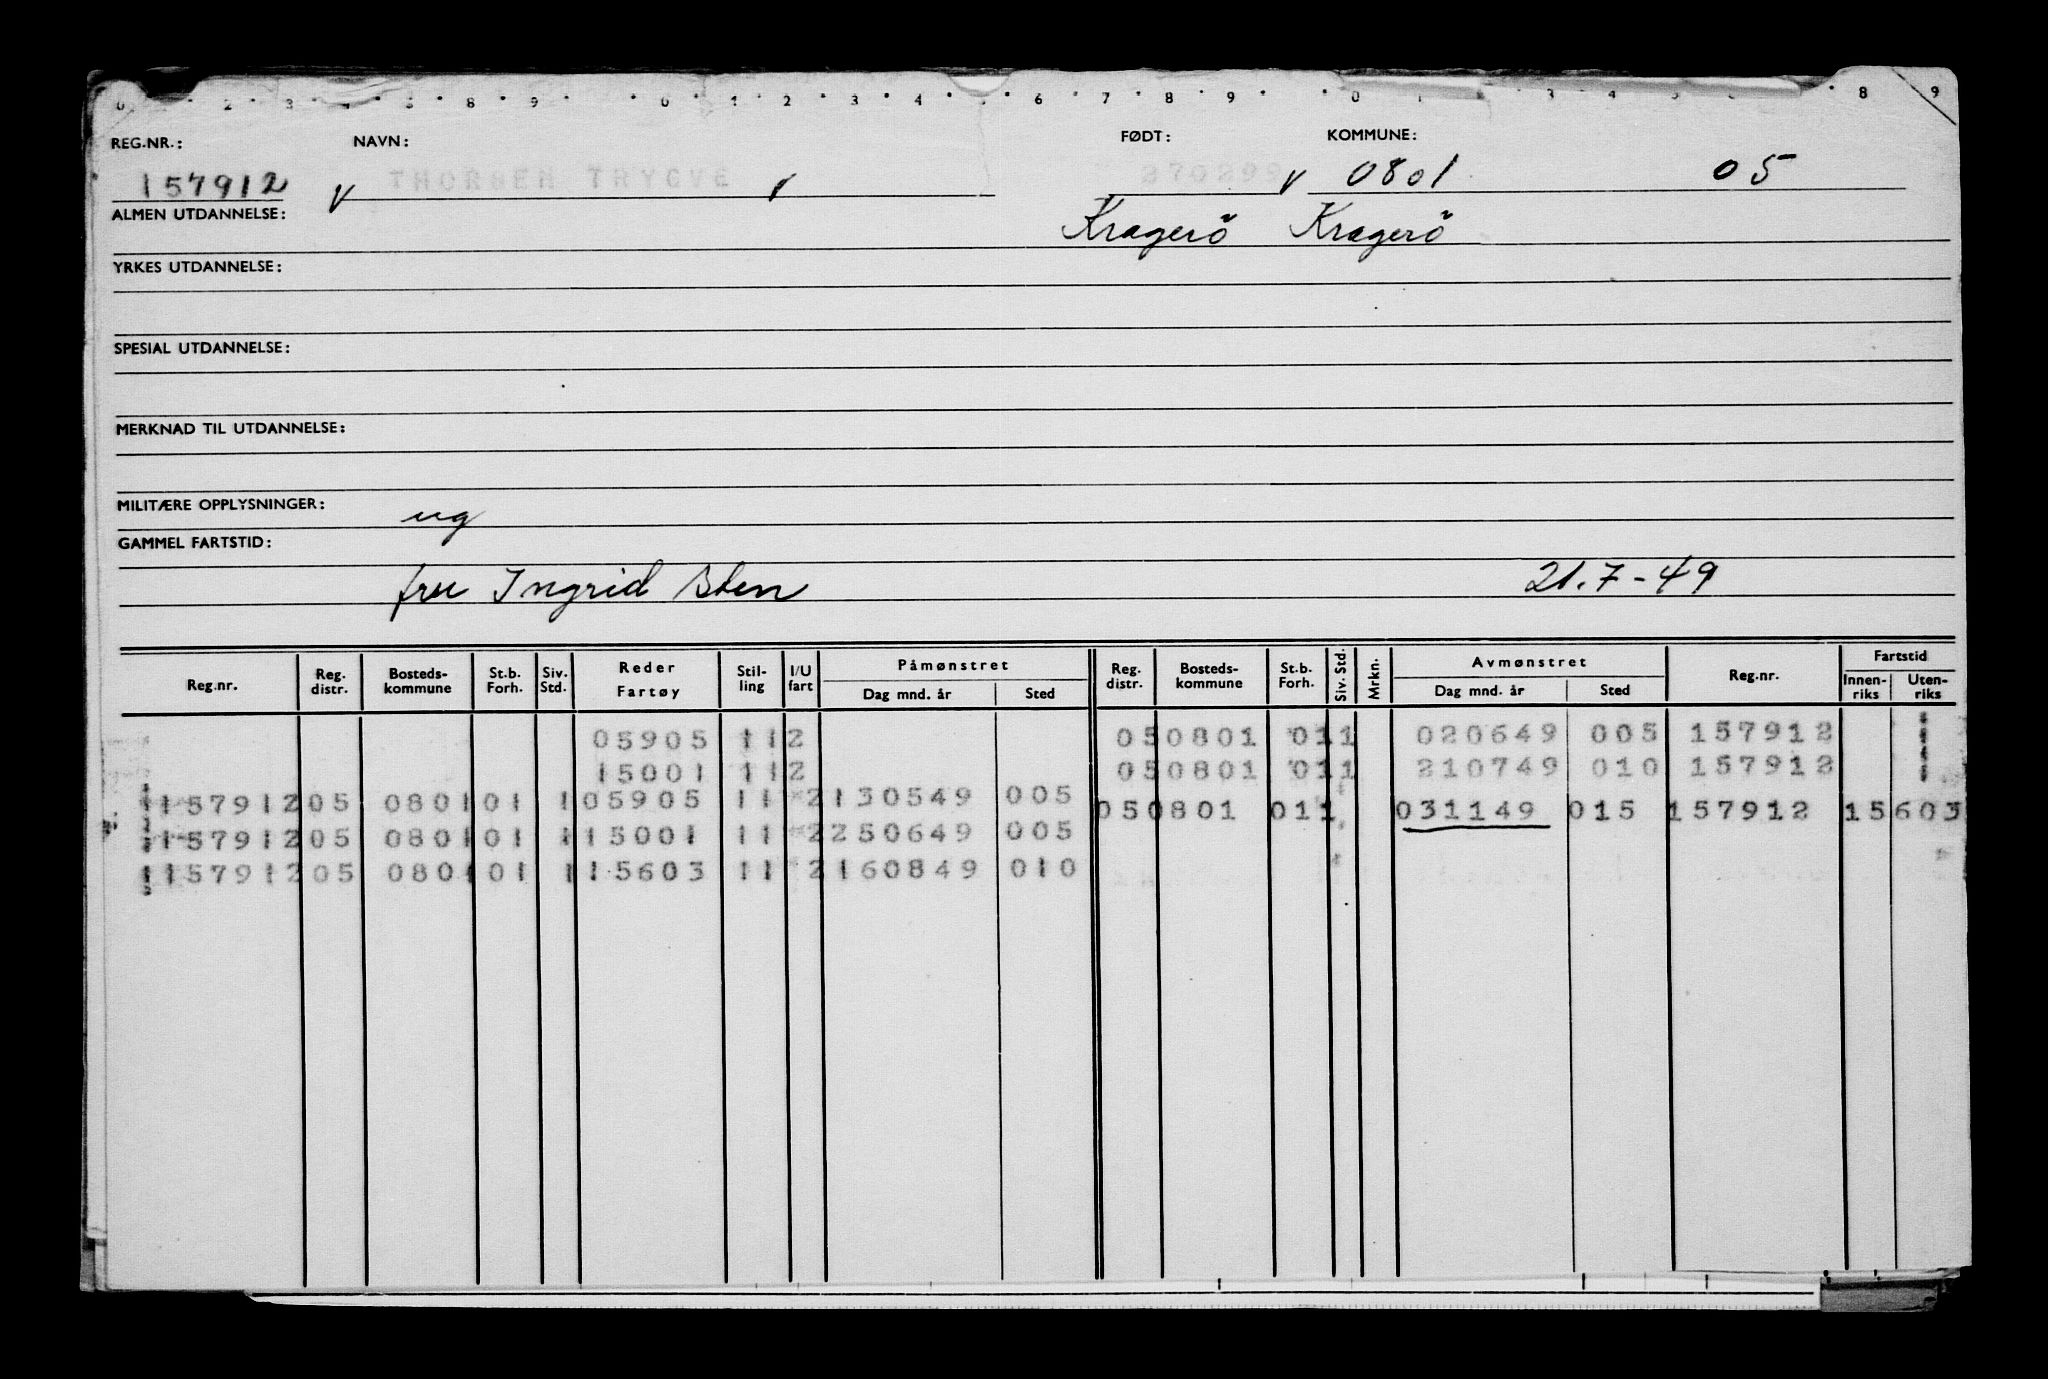 REG.NR.: NAVN: FØDT: KOMMUNE:
157912 v THORSEN TRYGVE v 270299 v 0801 05
ALMEN UTDANNELSE: Kragerö Kragerö
YRKES UTDANNELSE:
SPESIAL UTDANNELSE:
MERKNAD TIL UTDANNELSE:
MILITÆRE OPPLYSNINGER: ug
GAMMEL FARTSTID:
fru Ingrid Sten 21.7-49
Reg.nr. Reg. distr. Bosteds-kommune St.b. Forh. Siv. Std. Reder Fartøy Stil-ling I/U fart Påmønstret Dag mnd. år Sted Reg. distr. Bosteds-kommune St.b. Forh. Siv. Std. Mrkn. Avmønstret Dag mnd. år Sted Reg.nr. Fartstid Innen-riks Uten-riks
05905 11 2 05 0801 01 1 020649 005 157912
15001 11 2 05 0801 01 1 210749 010 157912
157912 05 0801 01 1 05905 11 2 130549 005 05 0801 01 1 031149 015 157912 15603
157912 05 0801 01 1 15001 11 2 250649 005
157912 05 0801 01 1 15603 11 2 160849 010